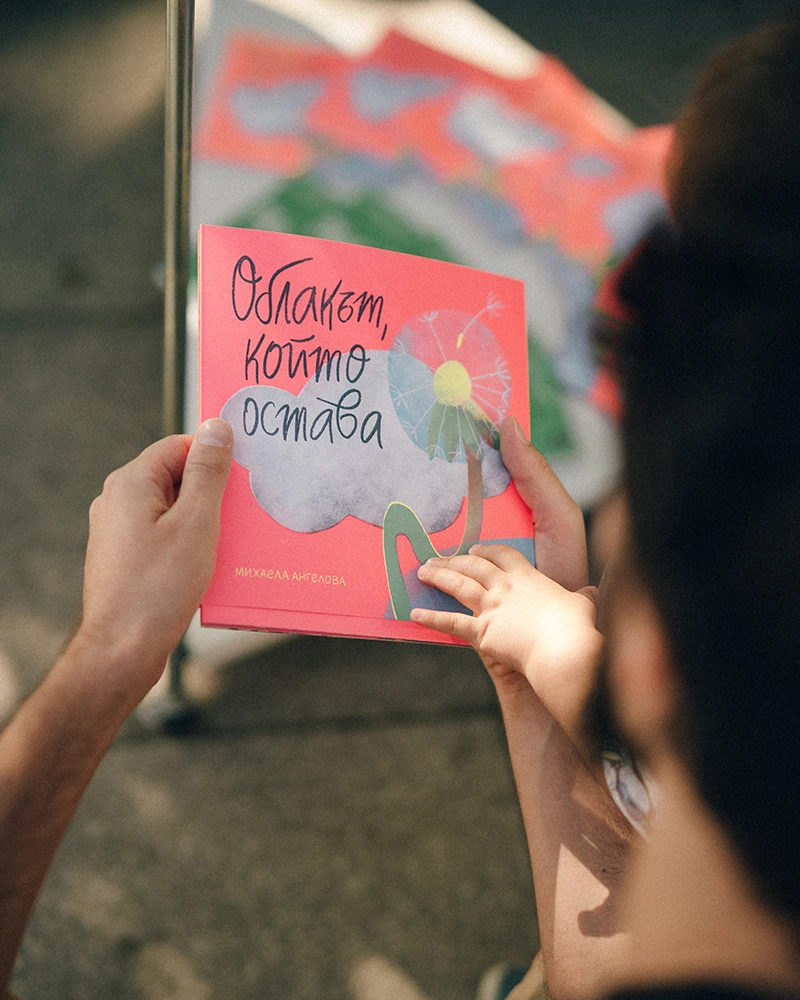 Облакът,
който
остава
МИХАЕЛА АНГЕЛОВА